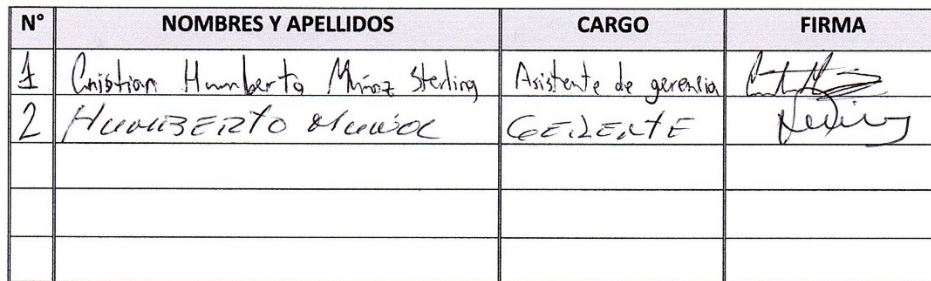 N° NOMBRES Y APELLIDOS CARGO FIRMA
1 Cristian Humberto Muñoz Sterling Asistente de gerencia
2 HUMBERTO MUÑOZ GERENTE